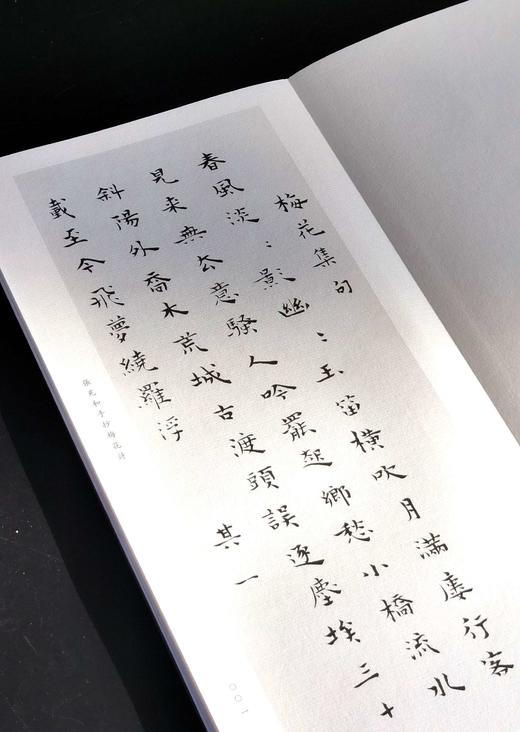 梅花集句
春風淡：影幽：玉笛橫吹月滿廔行客
見来無厺意騷人吟罷起鄉愁小橋流水
斜陽外喬木荒城古渡頭誤逐塵埃三十
載至今飛夢繞羅浮　其一
張充和手抄梅花詩
〇〇一